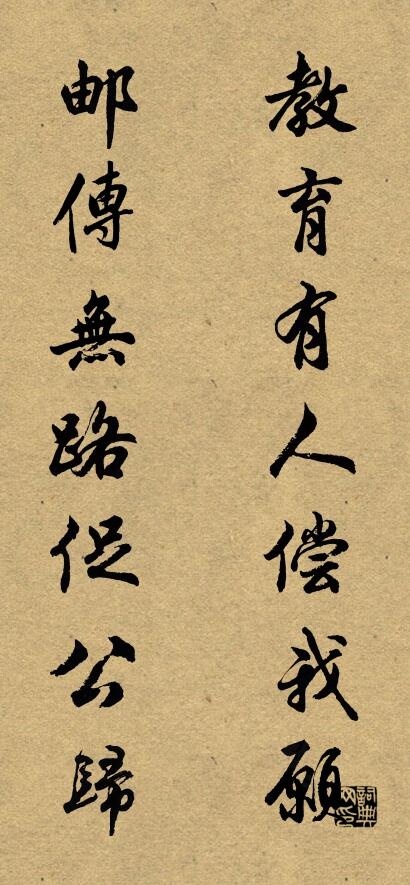 教育有人偿我願
邮傳無路促公歸